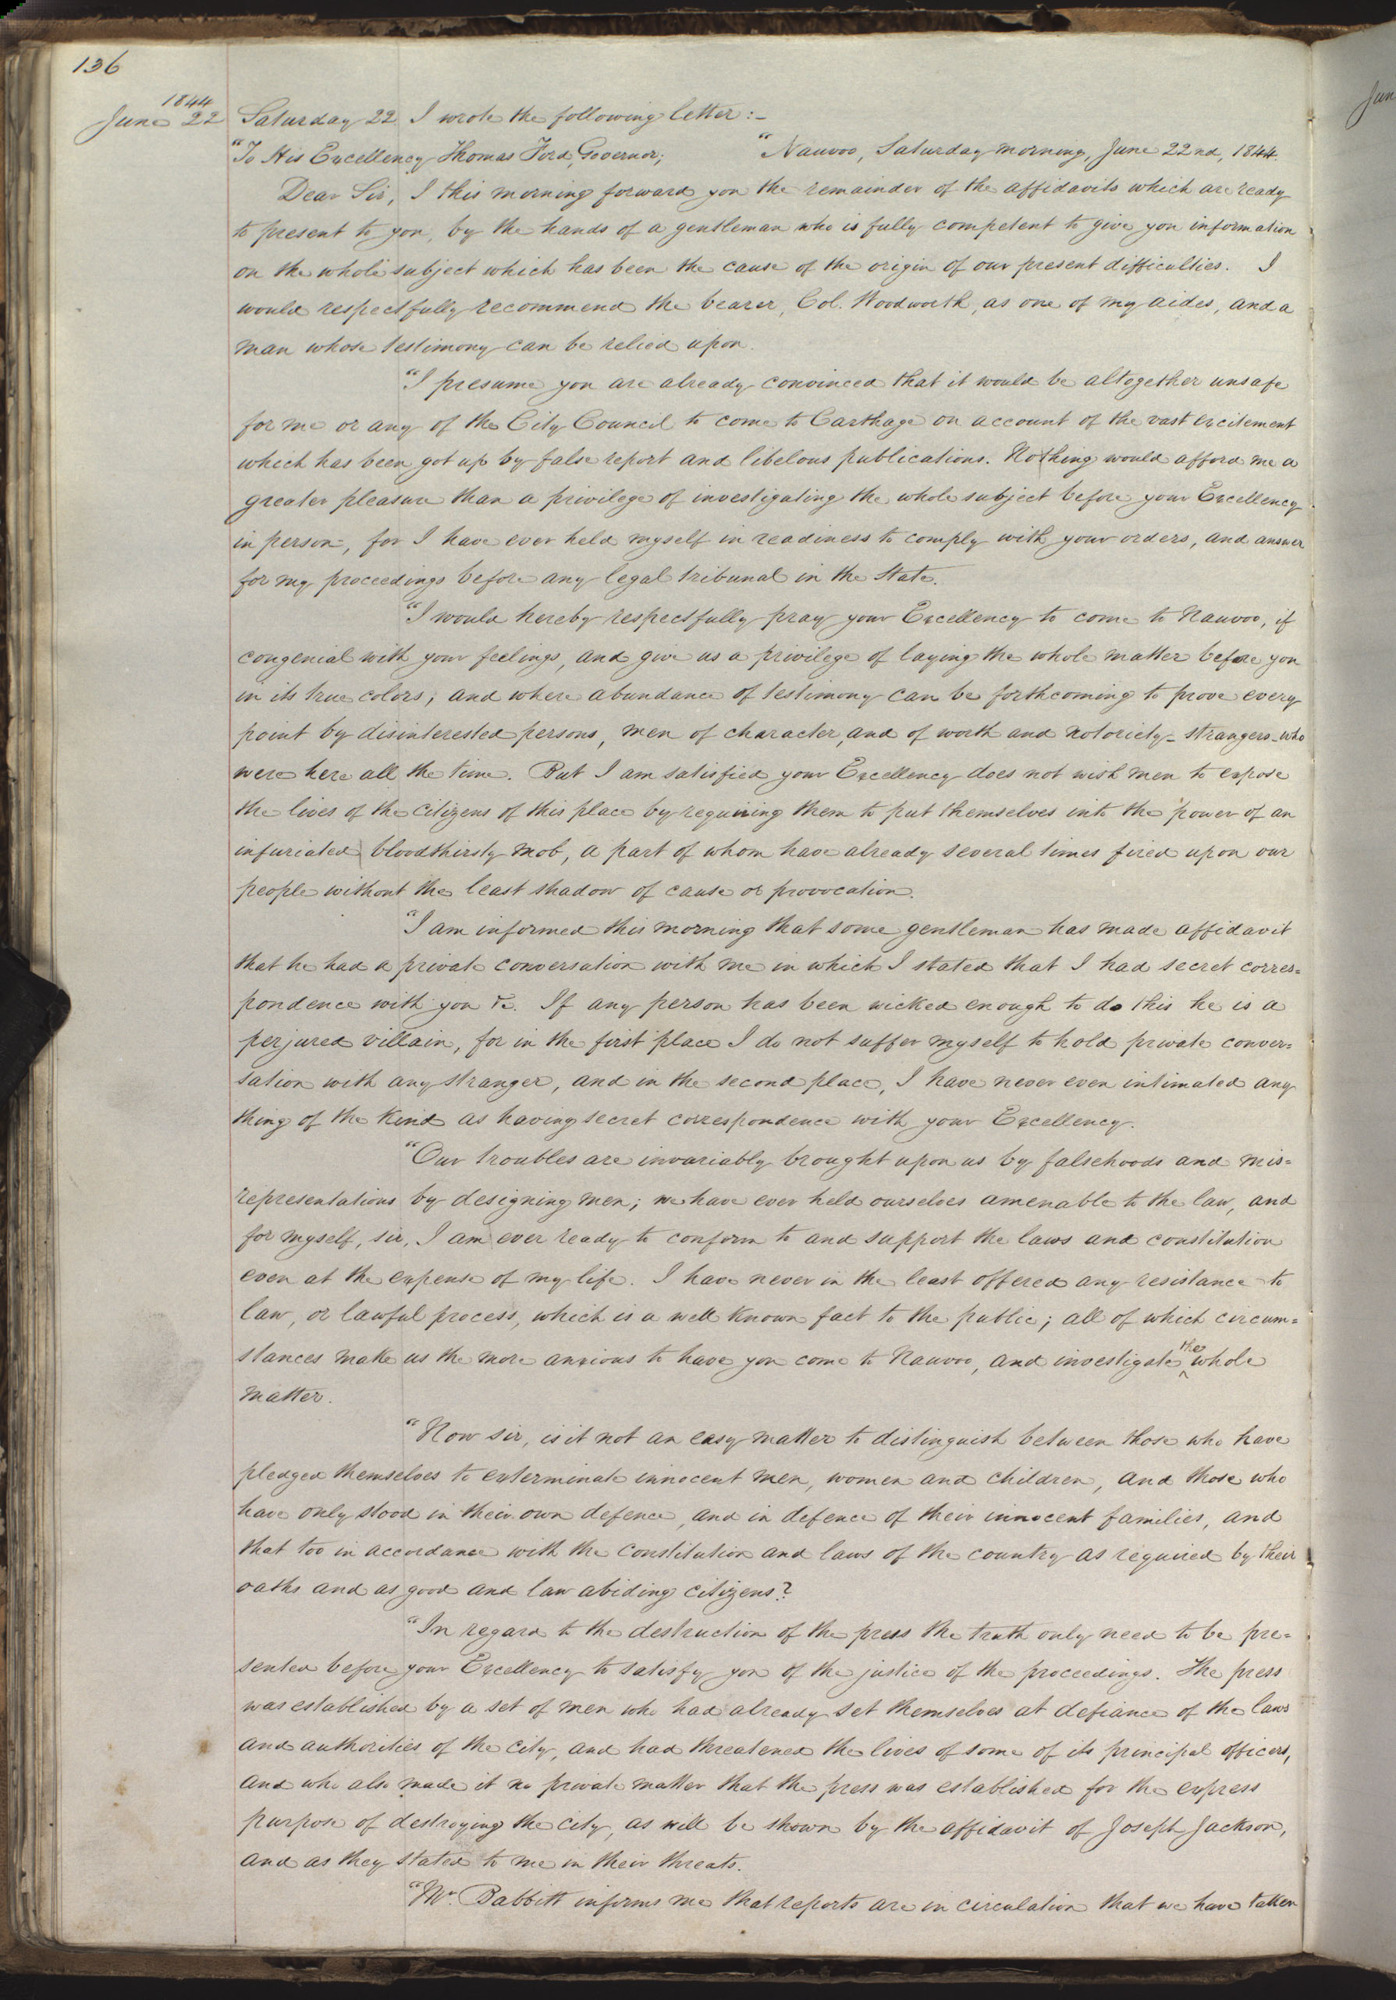 136
1844
June 22 Saturday 22 I wrote the following letter:–
"To His Excellency Thomas Ford, Governor; "Nauvoo, Saturday morning, June 22nd, 1844.
Dear Sir, I this morning forward you the remainder of the affidavits which are ready
to present to you, by the hands of a gentleman who is fully competent to give you information
on the whole subject which has been the cause of the origin of our present difficulties. I
would respectfully recommend the bearer, Col. Woodworth, as one of my aides, and a
man whose testimony can be relied upon.
"I presume you are already convinced that it would be altogether unsafe
for me or any of the City Council to come to Carthage on account of the vast excitement
which has been got up by false report and libelous publications. Nothing would afford me a
greater pleasure than a privilege of investigating the whole subject before your Excellency
in person, for I have ever held myself in readiness to comply with your orders, and answer
for my proceedings before any legal tribunal in the State.
"I would hereby respectfully pray your Excellency to come to Nauvoo, if
congenial with your feelings, and give us a privilege of laying the whole matter before you
in its true colors; and where abundance of testimony can be forthcoming to prove every
point by disinterested persons, men of character, and of worth and notoriety – strangers – who
were here all the time. But I am satisfied your Excellency does not wish men to expose
the lives of the citizens of this place by requiring them to put themselves into the power of an
infuriated, bloodthirsty mob, a part of whom have already several times fired upon our
people without the least shadow of cause or provocation.
"I am informed this morning that some gentleman has made affidavit
that he had a private conversation with me in which I stated that I had secret corres=
pondence with you &c. If any person has been wicked enough to do this he is a
perjured villain, for in the first place I do not suffer myself to hold private conver=
sation with any stranger, and in the second place, I have never even intimated any
thing of the kind as having secret correspondence with your Excellency.
"Our troubles are invariably brought upon us by falsehoods and mis=
representations by designing men; we have ever held ourselves amenable to the law, and
for myself, sir, I am ever ready to conform to and support the laws and constitution
even at the expense of my life. I have never in the least offered any resistance to
law, or lawful process, which is a well known fact to the public; all of which circum=
stances make us the more anxious to have you come to Nauvoo, and investigate ^the whole
matter.
"Now sir, is it not an easy matter to distinguish between those who have
pledged themselves to exterminate innocent men, women and children, and those who
have only stood in their own defence, and in defence of their innocent families, and
that too in accordance with the constitution and laws of the country as required by their
oaths and as good and law abiding citizens?
"In regard to the destruction of the press the truth only need to be pre=
sented before your Excellency to satisfy you of the justice of the proceedings. The press
was established by a set of men who had already set themselves at defiance of the laws
and authorities of the city, and had threatened the lives of some of its principal officers,
and who also made it no private matter that the press was established for the express
purpose of destroying the city, as will be shown by the affidavit of Joseph Jackson,
and as they stated to me in their threats.
"Mr. Babbitt informs me that reports are in circulation that we have taken
Jun